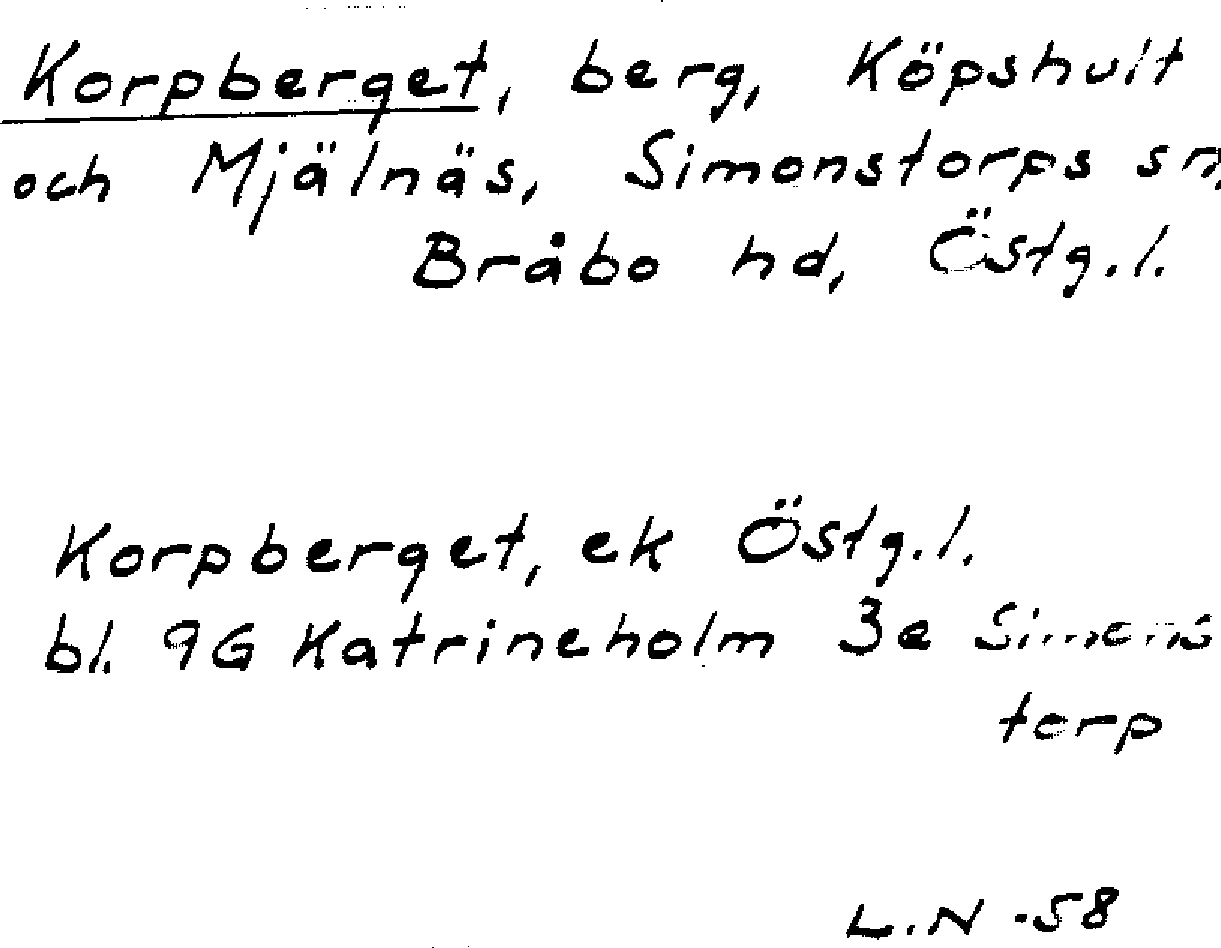 Korpberget, berg, Köpshult
och Mjälnäs, Simonstorps sn,
Bråbo hd, Östg.l.
Korpberget, ek Östg.l.
bl. 9G Katrineholm 3e Simons
torp
L.N -58